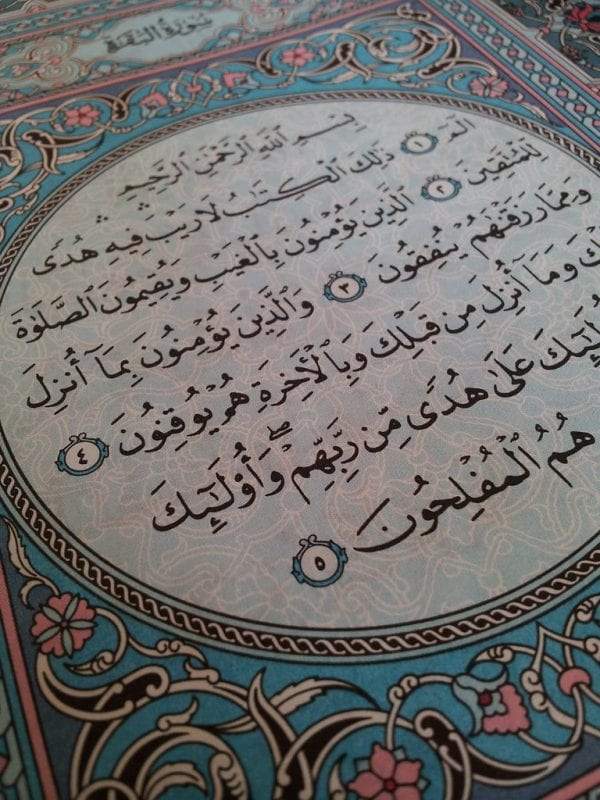 سُورَةُ البَقَرَةِ
بِسْمِ ٱللَّهِ ٱلرَّحْمَٰنِ ٱلرَّحِيمِ
الٓمٓ ١ ذَٰلِكَ ٱلْكِتَٰبُ لَا رَيْبَ ۛ فِيهِ ۛ هُدًى
لِّلْمُتَّقِينَ ٢ ٱلَّذِينَ يُؤْمِنُونَ بِٱلْغَيْبِ وَيُقِيمُونَ ٱلصَّلَوٰةَ
وَمِمَّا رَزَقْنَٰهُمْ يُنفِقُونَ ٣ وَٱلَّذِينَ يُؤْمِنُونَ بِمَآ أُنزِلَ
وَمَآ أُنزِلَ مِن قَبْلِكَ وَبِٱلْأٓخِرَةِ هُمْ يُوقِنُونَ ٤
عَلَىٰ هُدًى مِّن رَّبِّهِمْ ۖ وَأُوْلَٰٓئِكَ
هُمُ ٱلْمُفْلِحُونَ ٥